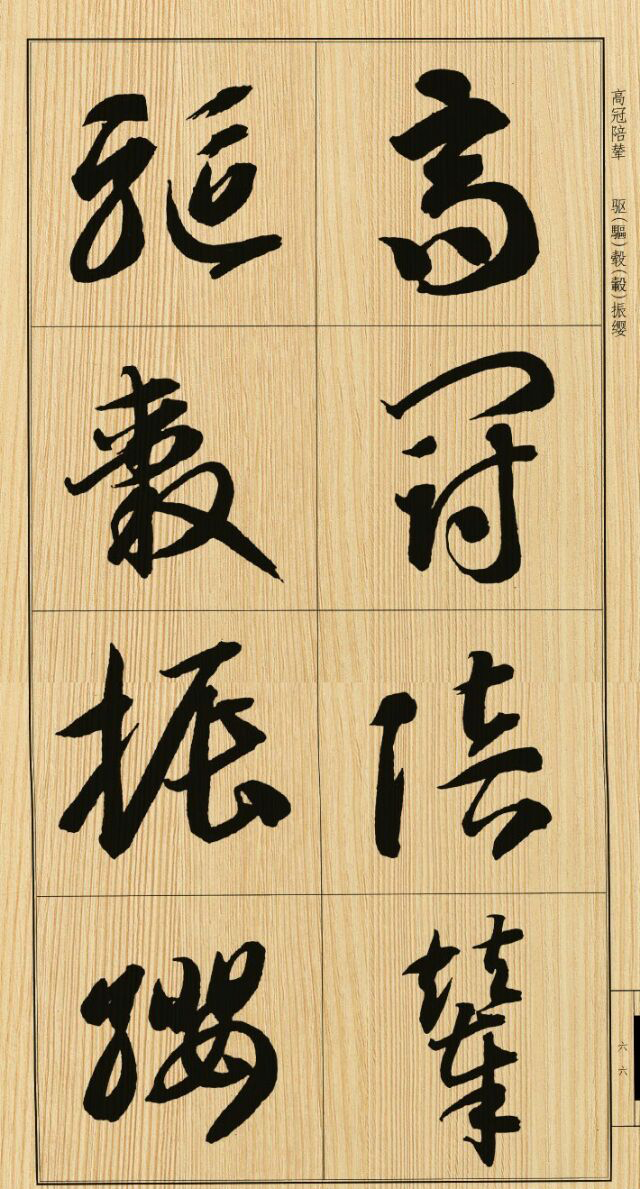 高冠陪辇 驱(驅)毂(轂)振缨
高冠陪輦
驅轂振纓
六六